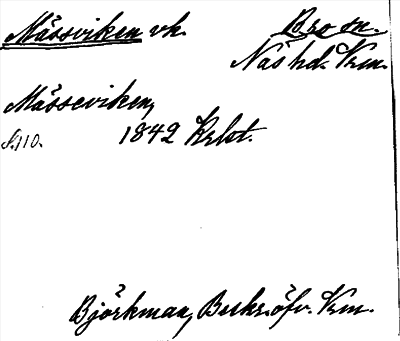 Mässviken vk. Bro sn.
Näs hd. Vrm.
Mässeviken,
S.110. 1842 Krlst.
Björkman, Beskr. öfv. Vrm.